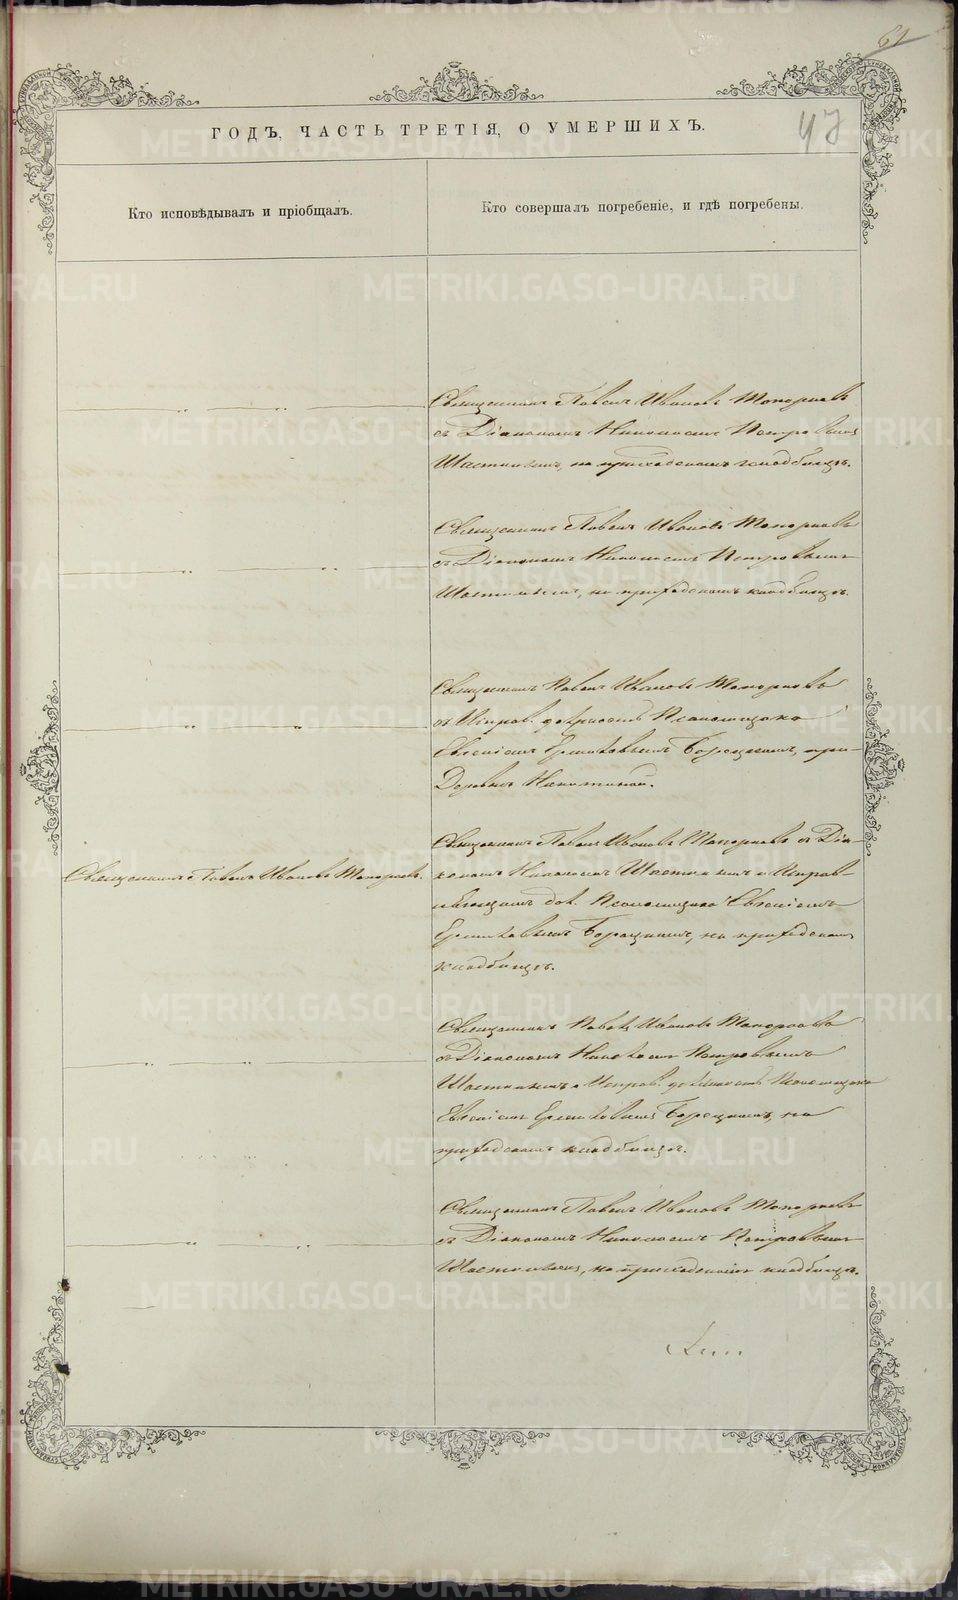 61
47
ГОДЪ, ЧАСТЬ ТРЕТІЯ, О УМЕРШИХЪ.
Кто исповѣдывалъ и пріобщалъ.
Кто совершалъ погребеніе, и гдѣ погребены.
Священникъ Павелъ Ивановъ Топорковъ
съ Діакономъ Николаемъ Петровымъ
на приходскомъ кладбищѣ.
Священникъ Павелъ Ивановъ Топорковъ
съ Діакономъ Николаемъ Петровымъ
на приходскомъ кладбищѣ.
Священникъ Павелъ Ивановъ Топорковъ
съ Исправ. должность Псаломщика
Евгеніемъ Борецкимъ, при
Деревнѣ Никитиной.
Священникъ Павелъ Ивановъ Топорковъ съ Діа-
кономъ Николаемъ и Исправ-
ляющимъ дол. Псаломщика Евгеніемъ
Борецкимъ, на приходскомъ
кладбищѣ.
Священникъ Павелъ Ивановъ Топорковъ.
Священникъ Павелъ Ивановъ Топорковъ
съ Діакономъ Николаемъ Петровымъ
и Исправ. должность Псаломщика
Евгеніемъ Борецкимъ, на
приходскомъ кладбищѣ.
Священникъ Павелъ Ивановъ Топорковъ
съ Діакономъ Николаемъ Петровымъ
на приходскомъ кладбищѣ.
METRIKI.GASO-URAL.RU